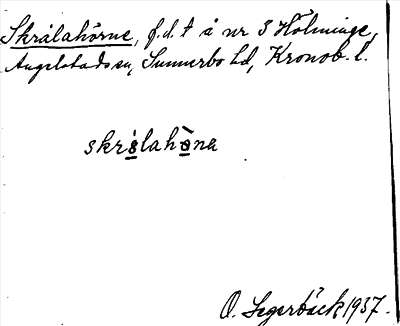 Skrålahörne, f.d. t å nr 3 Hölminge,
Angelstads sn, Sunnerbo hd, Kronob. l.
skrålahòna
O. Segerbäck 1937.